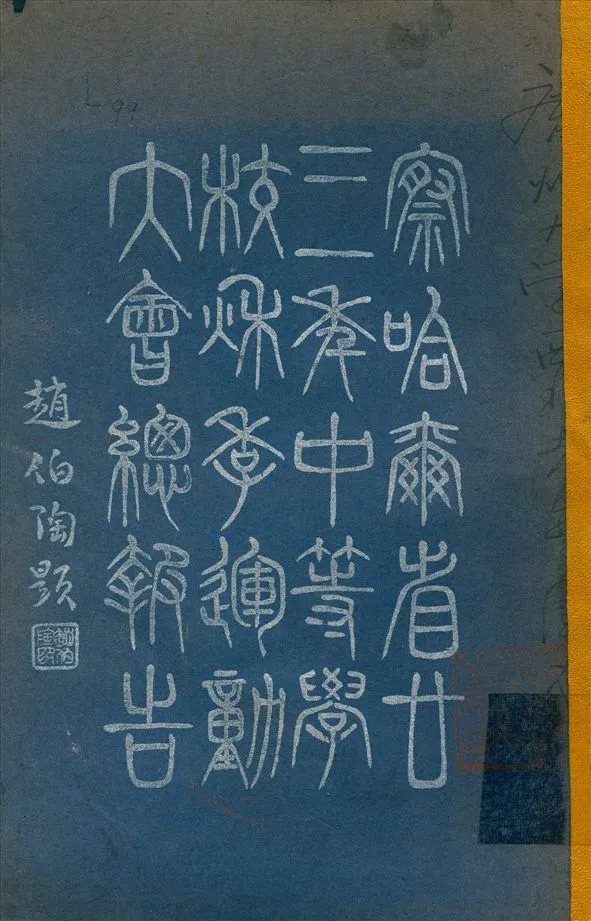 察哈爾省廿
三二年中等學
校秋季運動
大會總報告
趙伯陶題
L99